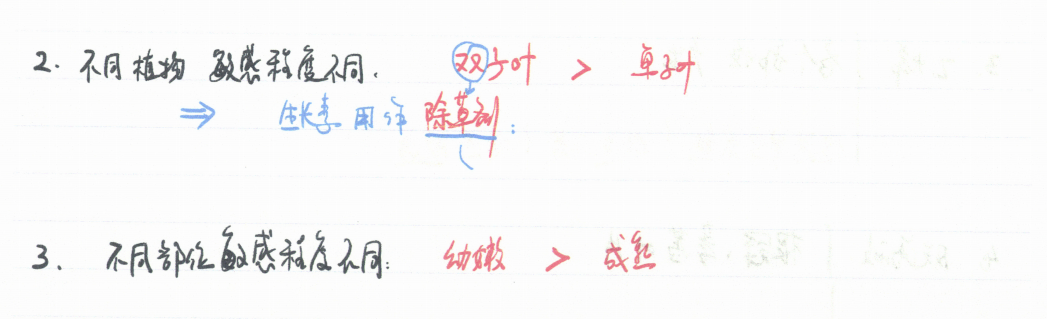 2. 不同植物 敏感程度不同. 双子叶 > 单子叶
⇒ 生长素 用作 除草剂:
3. 不同部位敏感程度不同: 幼嫩 > 成熟